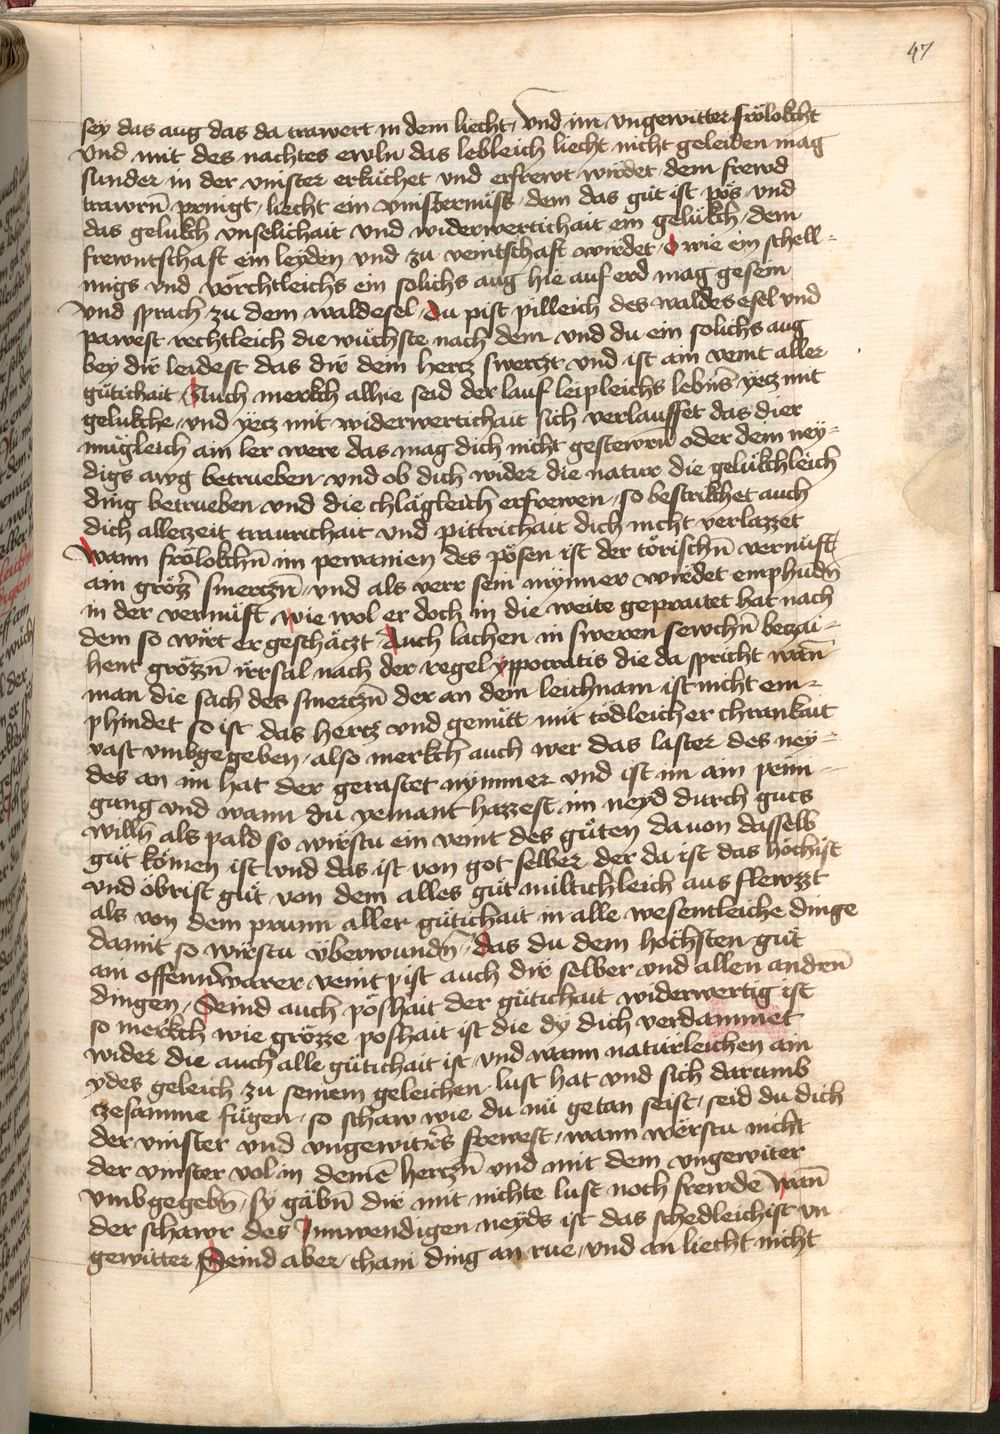 47
sey das aug das da trawert in dem liecht / vnd im vngewitter frölokcht
vnd mit des nachtes ewln das lebleich liecht nicht geleiden mag
sunder in der vinster erküchet vnd erfrewt wirdet / dem frewd
trawrn̄ pringt / liecht ein vinsternüss / dem das gůt ist pös vnd
das gelükh vnselichait vnd widerwertichait ein gelükch / dem
frewntschaft ein leyden vnd zu veintschaft wirdet / O wie ein schell-
migs vnd vorchtleichs ein solichs aug hie auf erd mag gesein
vnd sprach zu dem waldesel / du pist pilleich des waldes esel vnd
pawest rechtleich die wüchste nach dem vnd du ein solichs aug
bey dir leidest das dir dein hertz swerczt vnd ist ain veint aller
gütichait / Auch merkch alhie seid der lauf leipleichs lebn̄s yecz mit
gelükche / vnd yecz mit widerwertichait sich verlauffet das dier
mügleich ain ler were das mag dich nicht gestewrn̄ oder dein ney-
digs awg betrueben / vnd ob dich wider die natur die gelükchleich
ding betrueben / vnd die chlägleich erfrewen / so bestrikchet auch
dich allezeit traurichait vnd pittrichait dich nicht verlazzet
Wann frölokchn̄ im pewanien des pösen ist der törischn̄ vernüft
ain gröz̄ smerczn̄ / vnd als verr sein mynner wirdet emphudn̄
in der vernüft / wie wol er doch in die weite gepraitet hat nach
dem so wirt er geschäczt / Auch lachen in sweren sewchn̄ bezai-
hent grözzn̄ irrsal nach der regel yppocratis die da spricht wan̄
man die sach des smerczn̄ der an dem leichnam ist nicht em-
phindet so ist das hertz vnd gemütt mit tödleicher chrankait
vast vmbgegeben / also merkch auch wer das laster des ney-
des an im hat der gerastet nymmer vnd ist im ain peini-
gung vnd wann du yemant hazzest im neyd durch guts
willn̄ als pald so wirstu ein veint des gůten dauon dasselb
gůt kömen ist vnd das ist von got selber der da ist das höchist
vnd öbrist gůt von dem alles gůt miltichleich aus flewzzt
als von dem prunn aller gütichait in alle wesentleiche dinge
damit so wirstu vberwundn̄ / das du dem höchsten gůt
ain offennwarer veint pist auch dir selber vnd allen andrn̄
dingen / Seind auch pöshait der gütichait widerwertig ist
so merkch wie grözze poshait ist die dy dich verdammet
wider die auch alle gütichait ist / vnd wann natürleichen ain
ydes geleich zu seinem geleichen / lust hat vnd sich darumb
czesamme fügen / so schaw wie du nů getan seist / seid du dich
der vinster vnd vngewitrs̄ frewest / wann wërstu nicht
der vinster vol in deinē hertzn̄ vnd mit dem vngewiter
vmbgegebn̄ / sy gäbn̄ dir mit nichte lust noch frewde wan̄
der schawr des Inwendigen neyds ist das schedleichist vn
gewitter / Seind aber chain ding an rue / vnd an liecht nicht